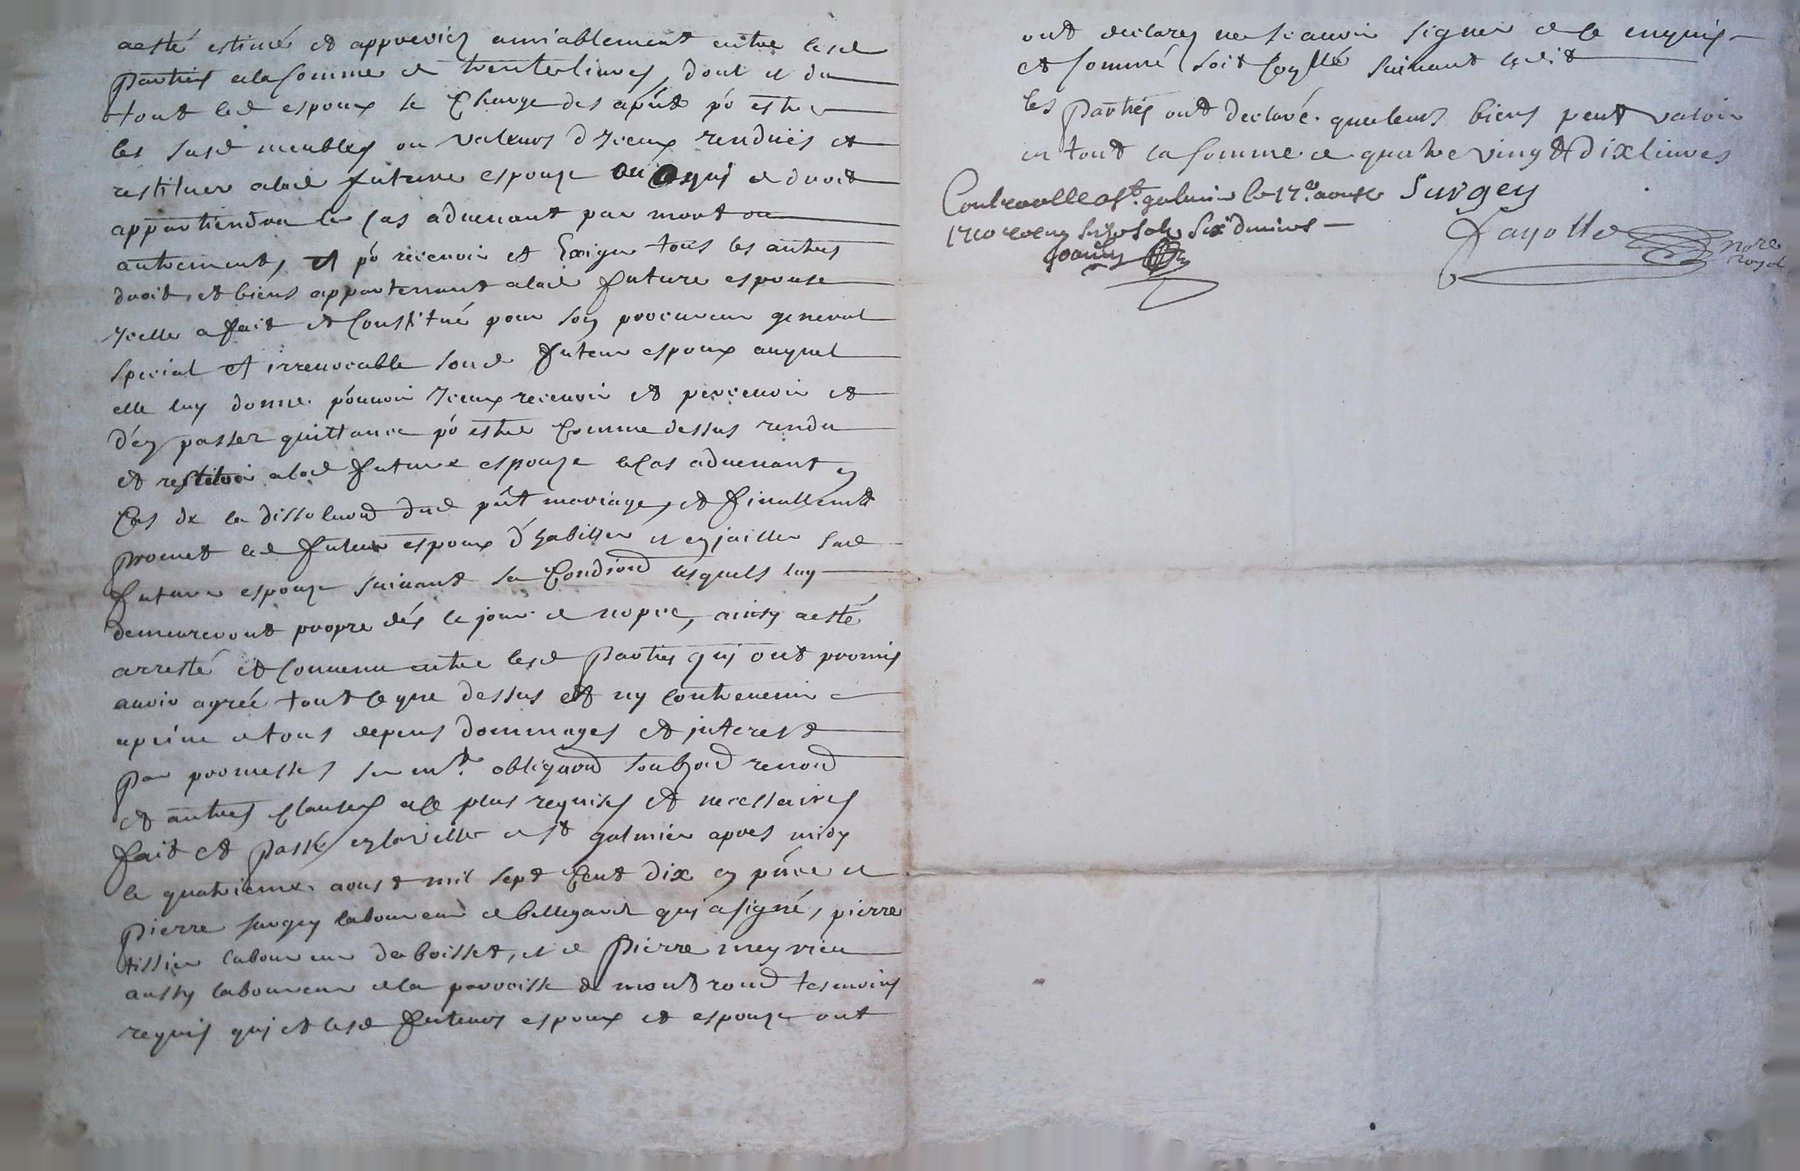 a esté estimé et appreciez amiablement entre lesd
parties a la somme de trente livres, dont et du
tout led espoux se charge des apñt pr estre
les susd meubles ou valeurs d'Iceux renduës et
restituer a lad future espouze ou a qui de droit
appartiendra le cas advenant par mort ou
autrement, et pr recevoir et Exiger tous les autres
droits et biens appartenant a lad future espouse
Icelle a fait et Constitué pour son procureur general
special et irrevocable sond futeur espoux auquel
elle luy donne pouvoir Iceux recevoir et percevoir et
d'en passer quittance pr estre Comme dessus rendu
et restituer a lad future espouze le Cas advenant en
Cas de la dissoluõn dud pñt mariage, et finallement
promet led futeur espoux d'habiller et enjailler sad
future espouze suivant sa Condiõn lesquels luy
demeureront propre dés le jour de nopce, ainsy a esté
arresté et convenu entre lesd parties qui ont promis
avoir agréé tout ce que dessus et ny contrevenir
a peine de tous depens dommages et interest
par promesses serment obligaõn renoõn
et autres clauses a ce plus requises et necessaires
fait et passé en la ville de st galmier apres midy
le quatrieme aoust mil sept Cent dix en pñce de
pierre surgey laboureur de bellegarde qui a signé, pierre
tissier laboureur de boisset, et de pierre meyrieu
aussy laboureur de la parroisse de montrond tesmoins
requis qui et lesd futeurs espoux et espouze ont
ont declarez ne scavoir signer de ce enquis
et sommé soit Conllé suivant ledit
les parties ont declaré que leurs biens peut valoir
en tout la somme de quatre vingt dix livres
Controollé a st galmier le 17e aoust
1710 reçu six deniers
Surgey
Fayolle nore
royal